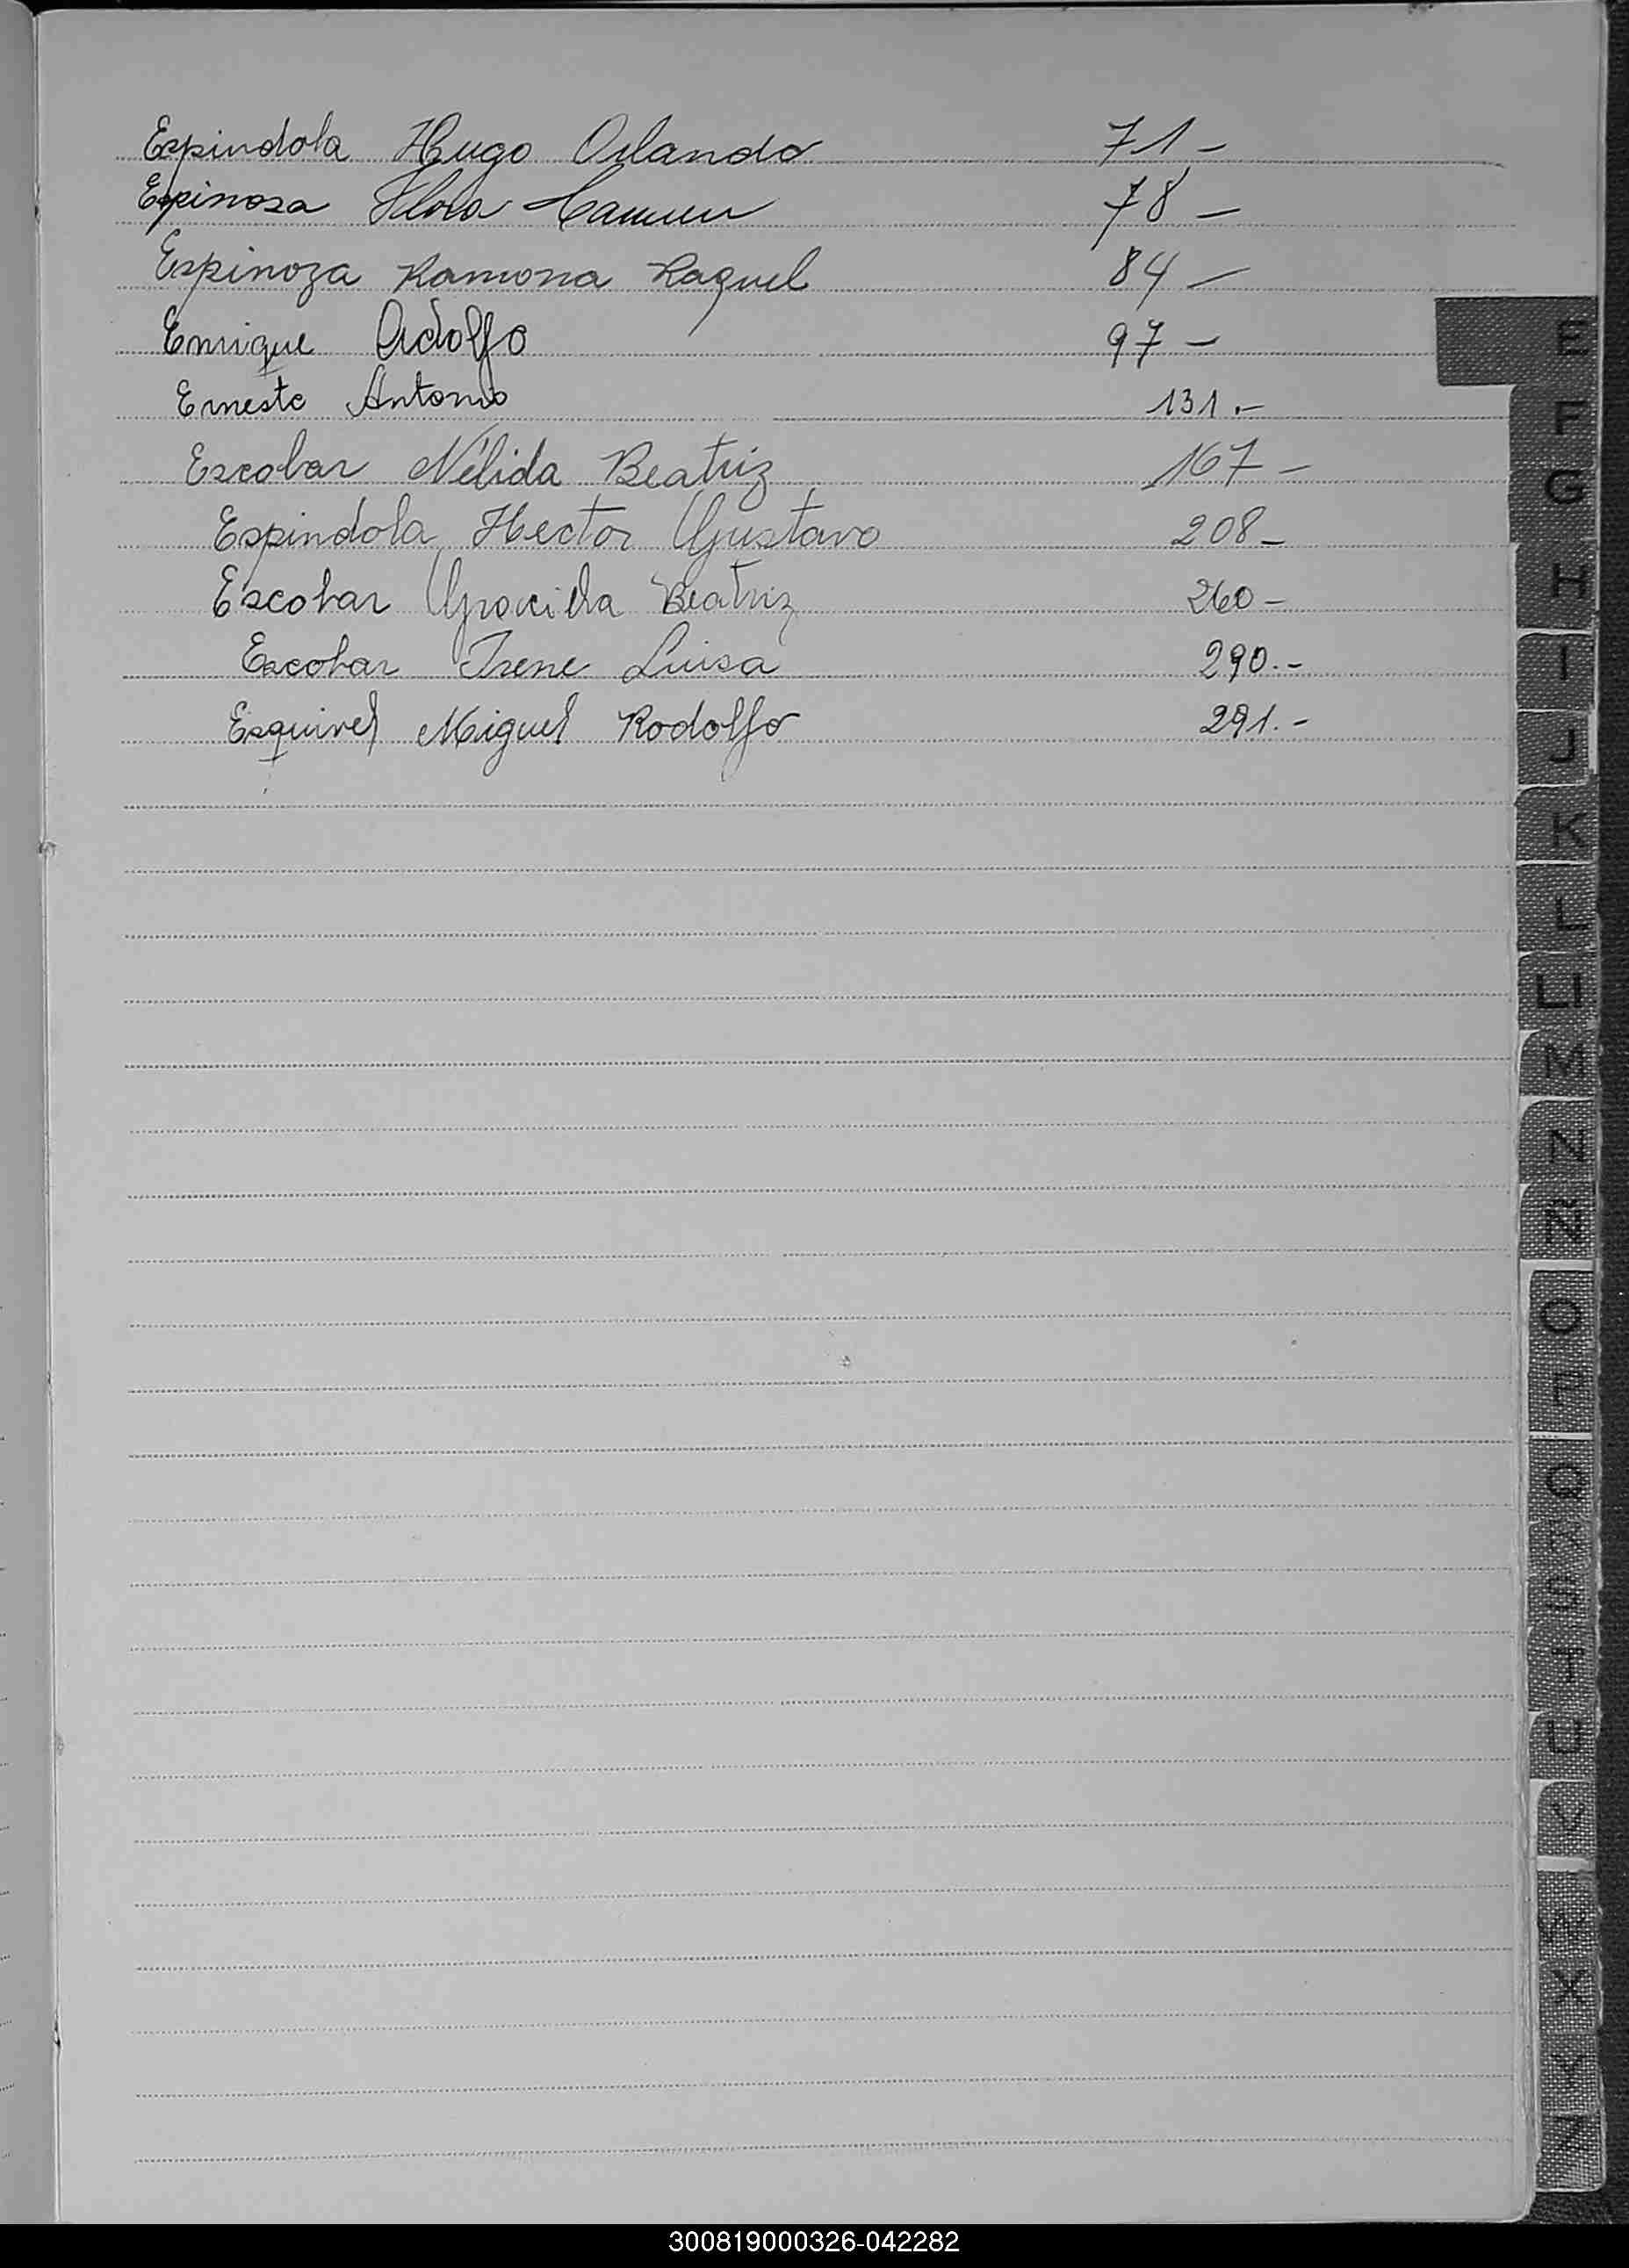 Espindola Hugo Orlando 71-
Espinosa Flora Carmen 78-
Espinoza Ramona Raquel 84-
Enrique Adolfo 97-
Ernesto Antonio 131.-
Escobar Nélida Beatriz 167-
Espindola Hector Gustavo 208-
Escobar Graciela Beatriz 260-
Escobar Irene Luisa 290.-
Esquivel Miguel Rodolfo 291.-
E
F
G
H
I
J
K
L
LL
M
N
Ñ
O
P
Q
R
S
T
U
V
W
X
Y
Z
300819000326-042282